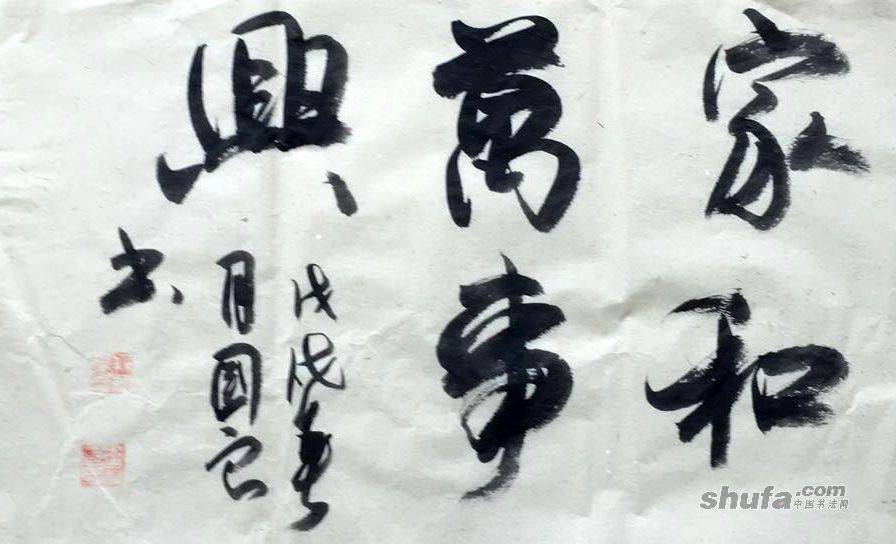 家和
萬事
興
戊戌春
月國良
书
shufa.com
中国书法网